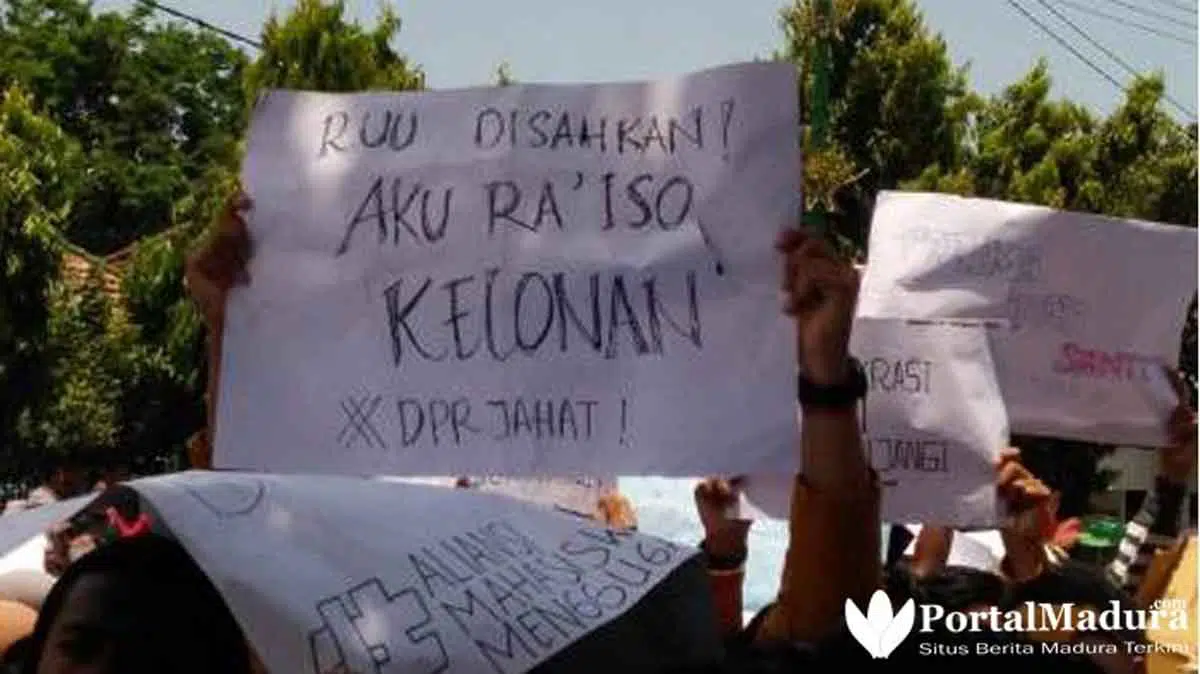 RUU DISAHKAN!
AKU RA'ISO
KELONAN
DPR JAHAT!
RASI
JANGI
#ALIANSI
MAHASISWA
MENGGUGA
PortalMadura.com
Situs Berita Madura Terkini